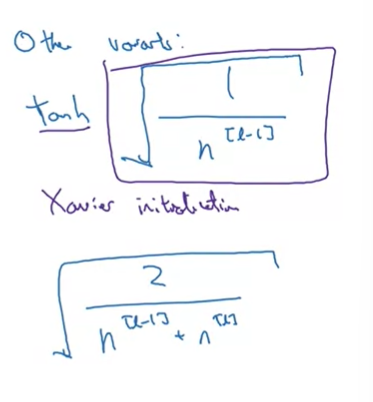 Other variants:
tanh √(1 / n^[l-1])
Xavier initialization
√(2 / (n^[l-1] + n^[l]))